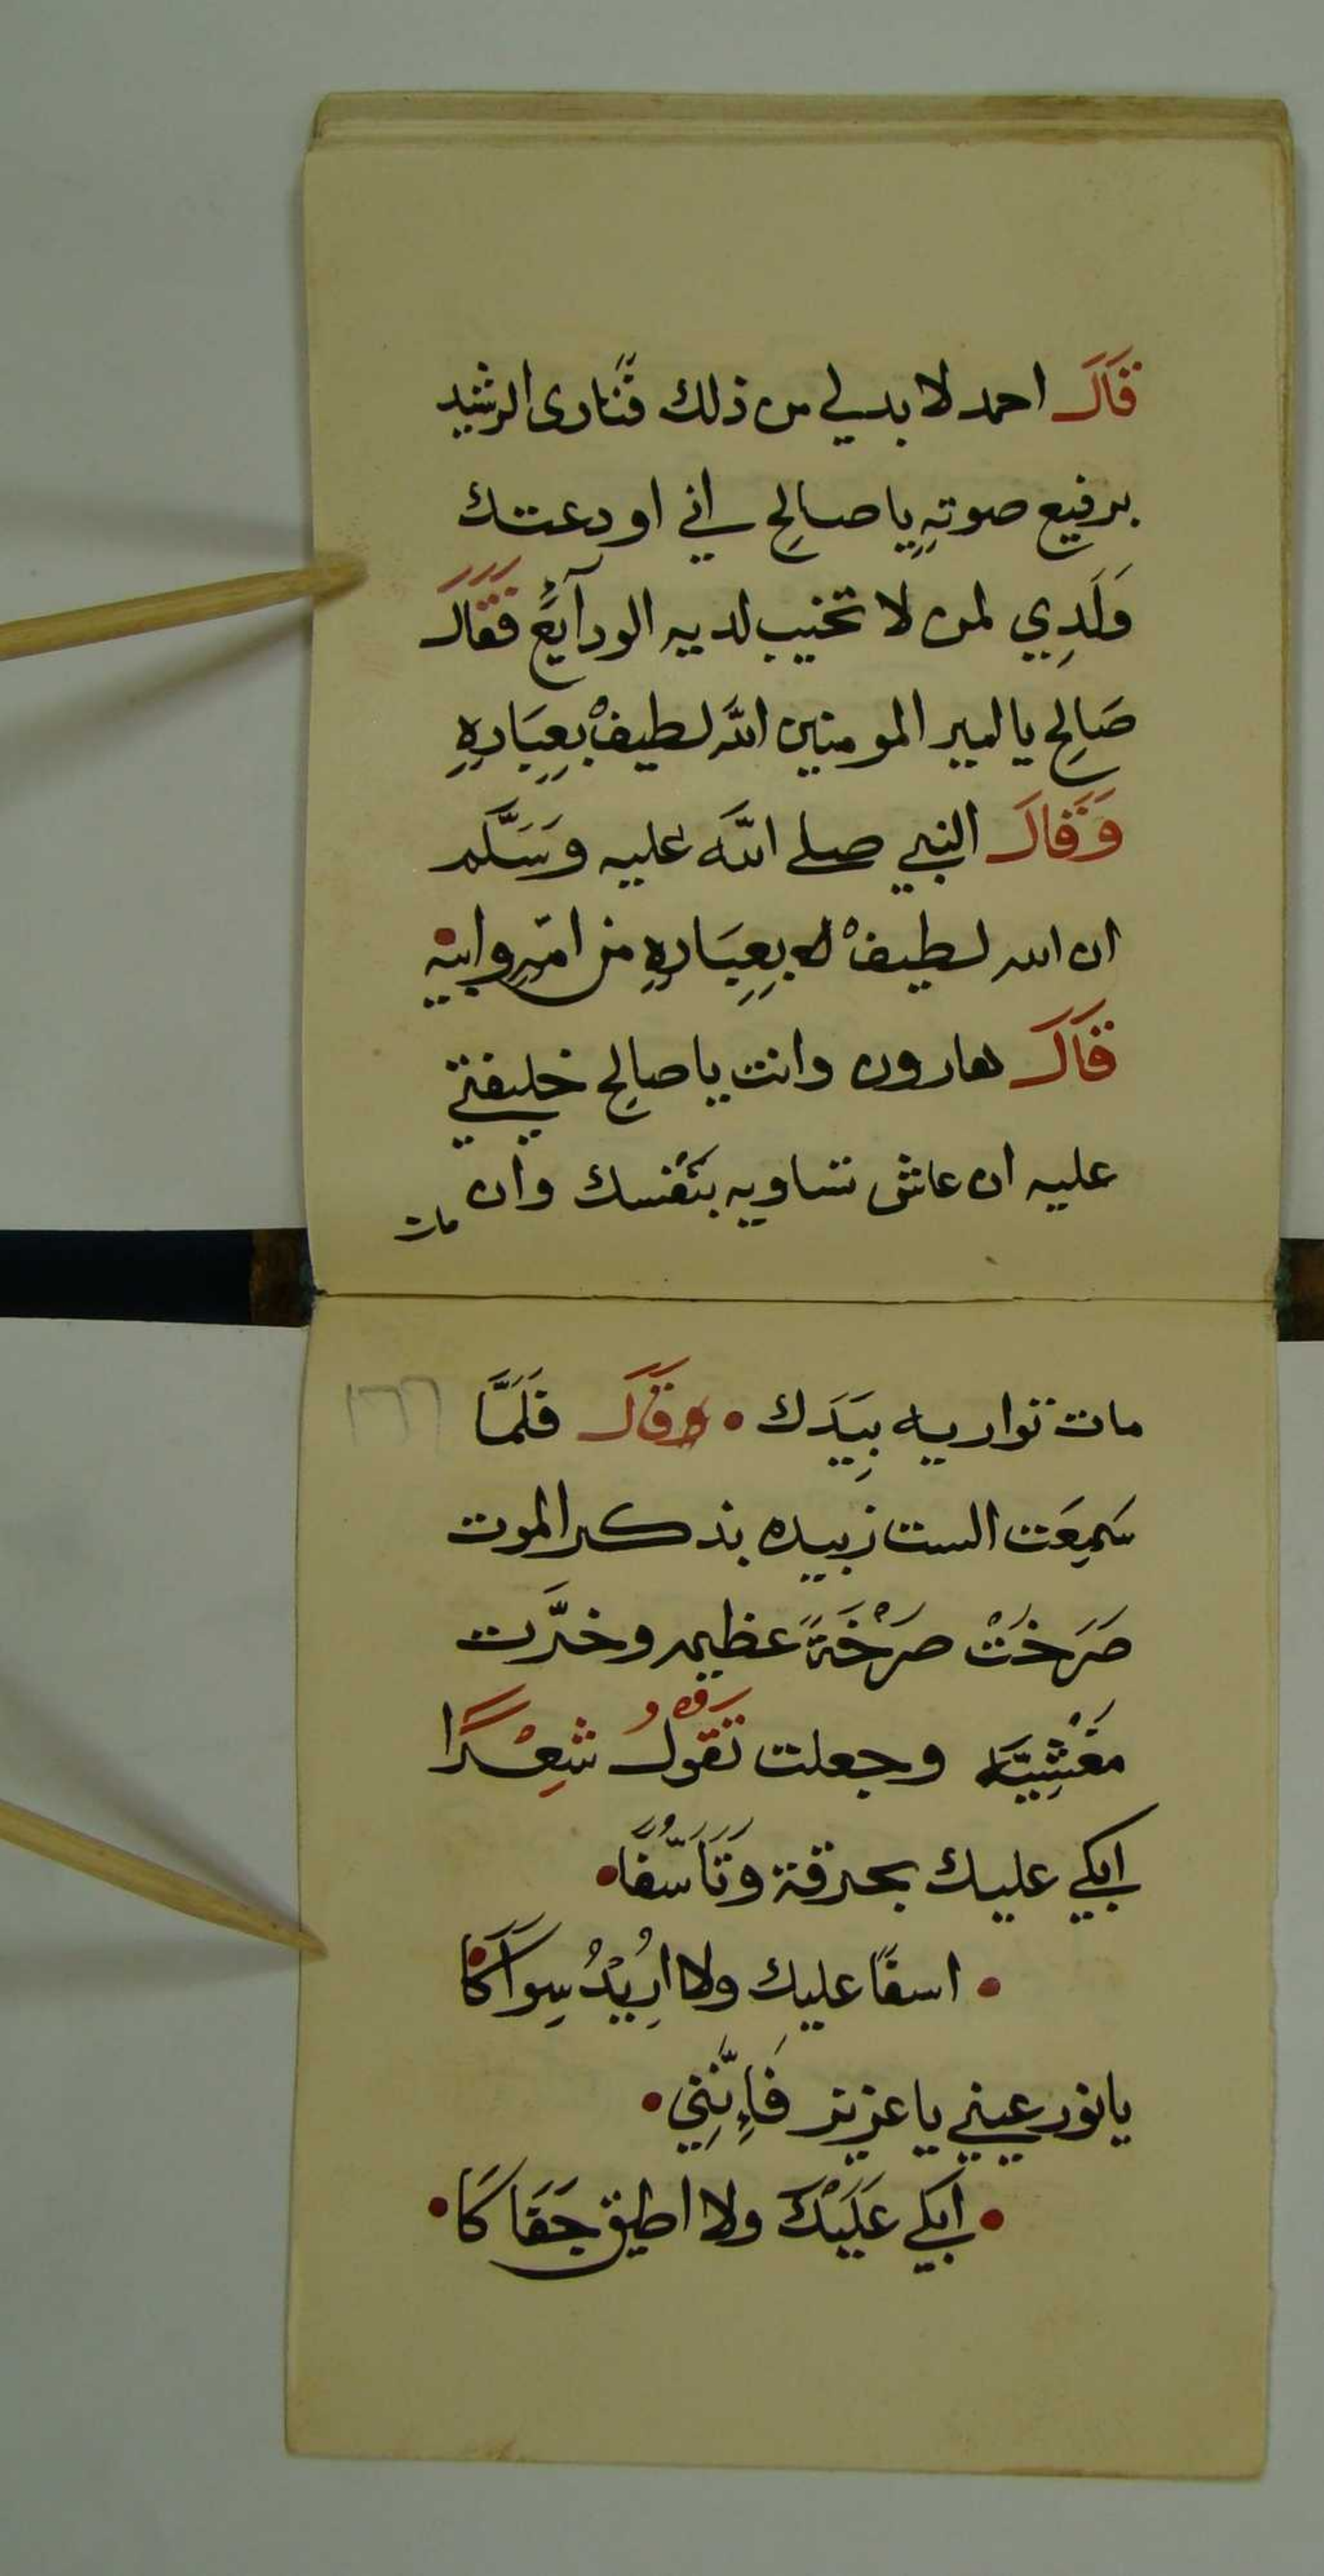 قَالَ احمد لا بد لي من ذلك فنَادى الرشيد
برفيع صوتهِ يا صالحِ اني اودعتك
وَلَدِي لمن لا تخيب لديه الودآيعُ فَقَالَ
صَالحِ يا امير المومنين اللّه لطيفْ بِعِبَادِهِ
وَقَالَ النبي صلى اللّه عليه وَسَلَّم
ان الله لطيفْ بِعِبَادِهِ من امّهِ وابيهِ
قَالَ هارون وانت يا صالحِ خليفتي
عليه ان عاش تساويه بنَفْسك وان
مات
مات تواريه بِيَدَك • وقَالَ فَلَمَّا
١٦٦
سَمِعَت الست زبيده بذكر الموت
صَرَخَتْ صَرْخَةً عظيمه وخرَّت
مَغْشِيَّه وجعلت تَقُولُ شِعْرًا
ابكي عليك بحرقة وَتَأَسُّفًا •
• اسفًا عليك ولا ارِيْدُ سِوَاكَا •
يا نور عيني يا عزيز فَاِنَّنِي •
• ابكي عَلَيْكَ ولا اطيق جَفَاكَا •